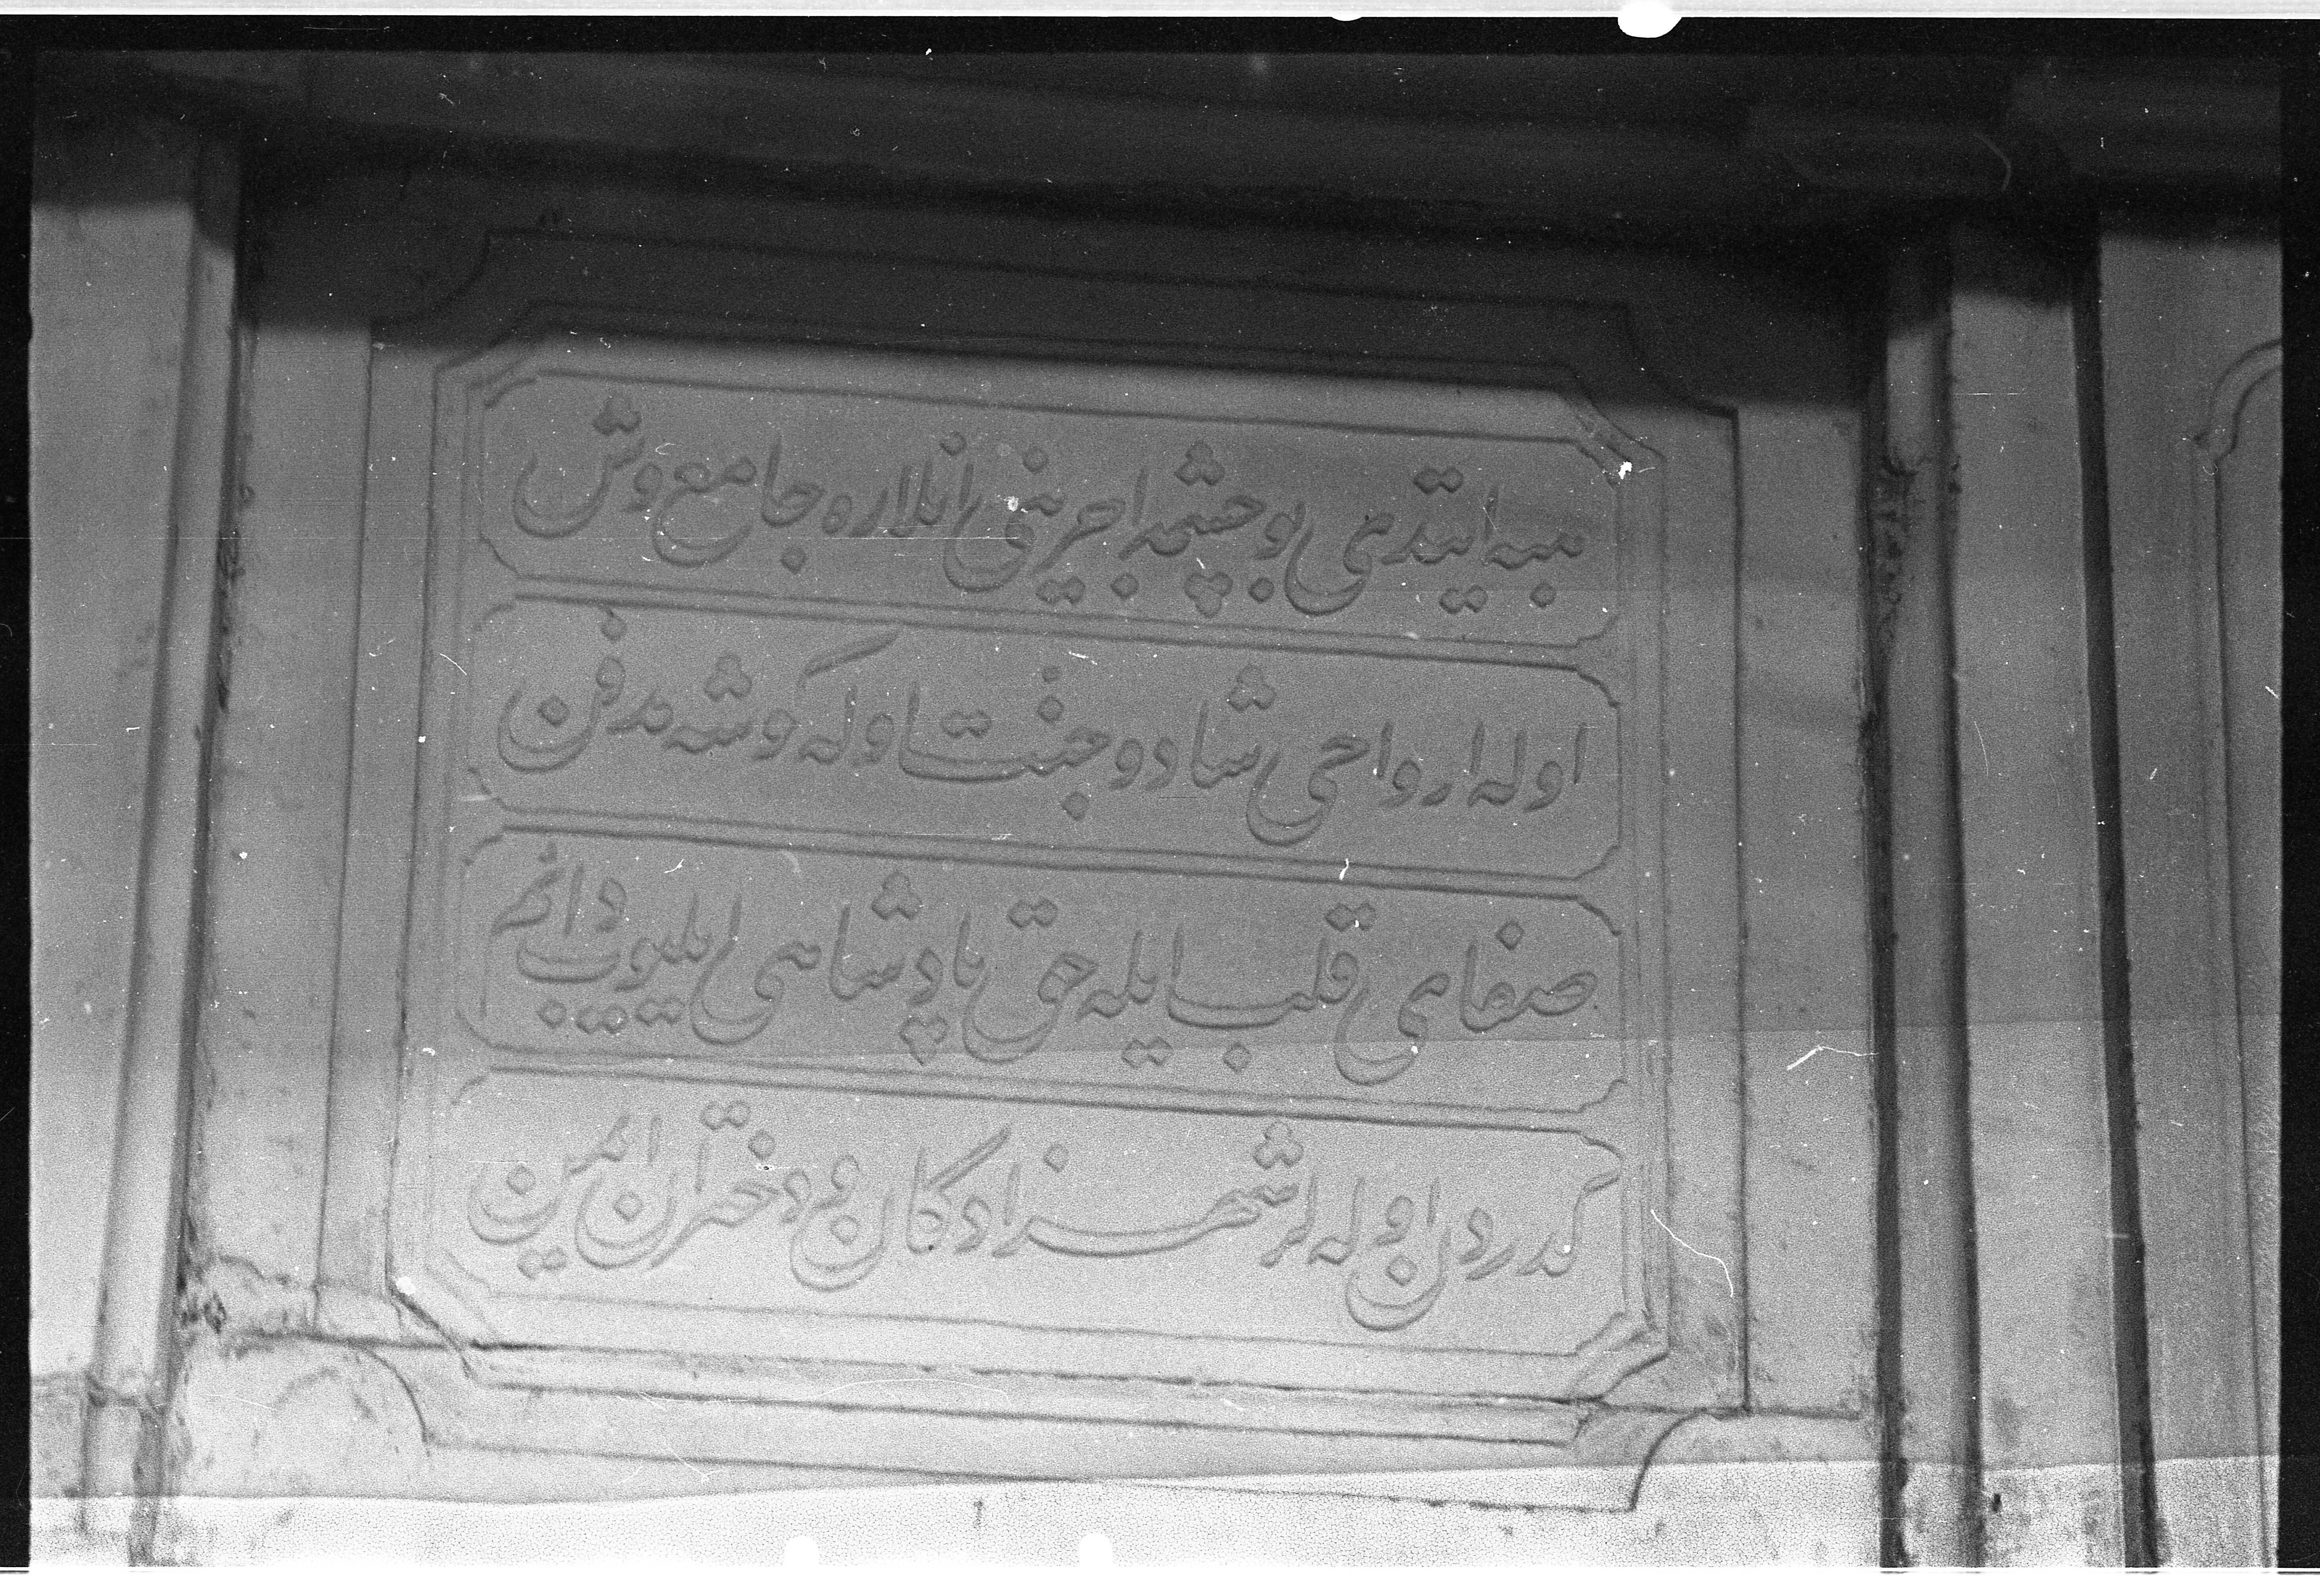 هبه ایتدی بو چشمه اجرینی انلاره جامع وش
اوله ارواحی شاد و جنت اوله گوشه مدفن
صفای قلب ایله حق پادشاهی ایلیوب دائم
کدردن اوله لر شهزادکان و دختران ایمن